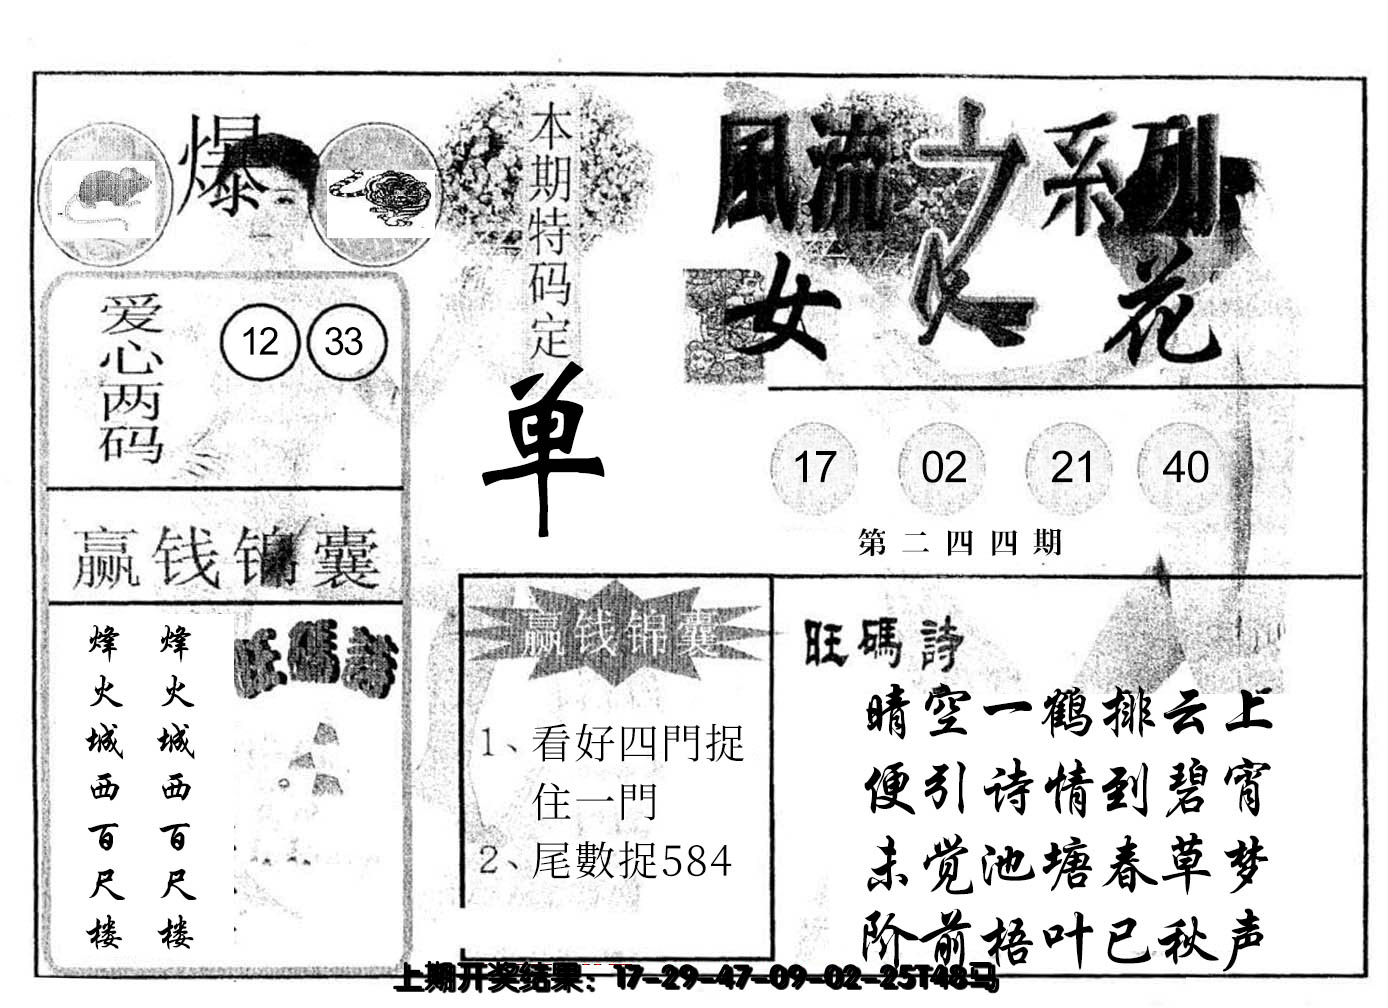 爆
爱心两码
12 33
赢钱锦囊
烽火城西百尺楼
烽火城西百尺楼
旺碼詩
本期特码定
单
風流之系列
女人花
17 02 21 40
第二四四期
赢钱锦囊
1、看好四門捉
住一門
2、尾數捉584
旺碼詩
晴空一鹤排云上
便引诗情到碧宵
未觉池塘春草梦
阶前梧叶已秋声
上期开奖结果：17-29-47-09-02-25T48马